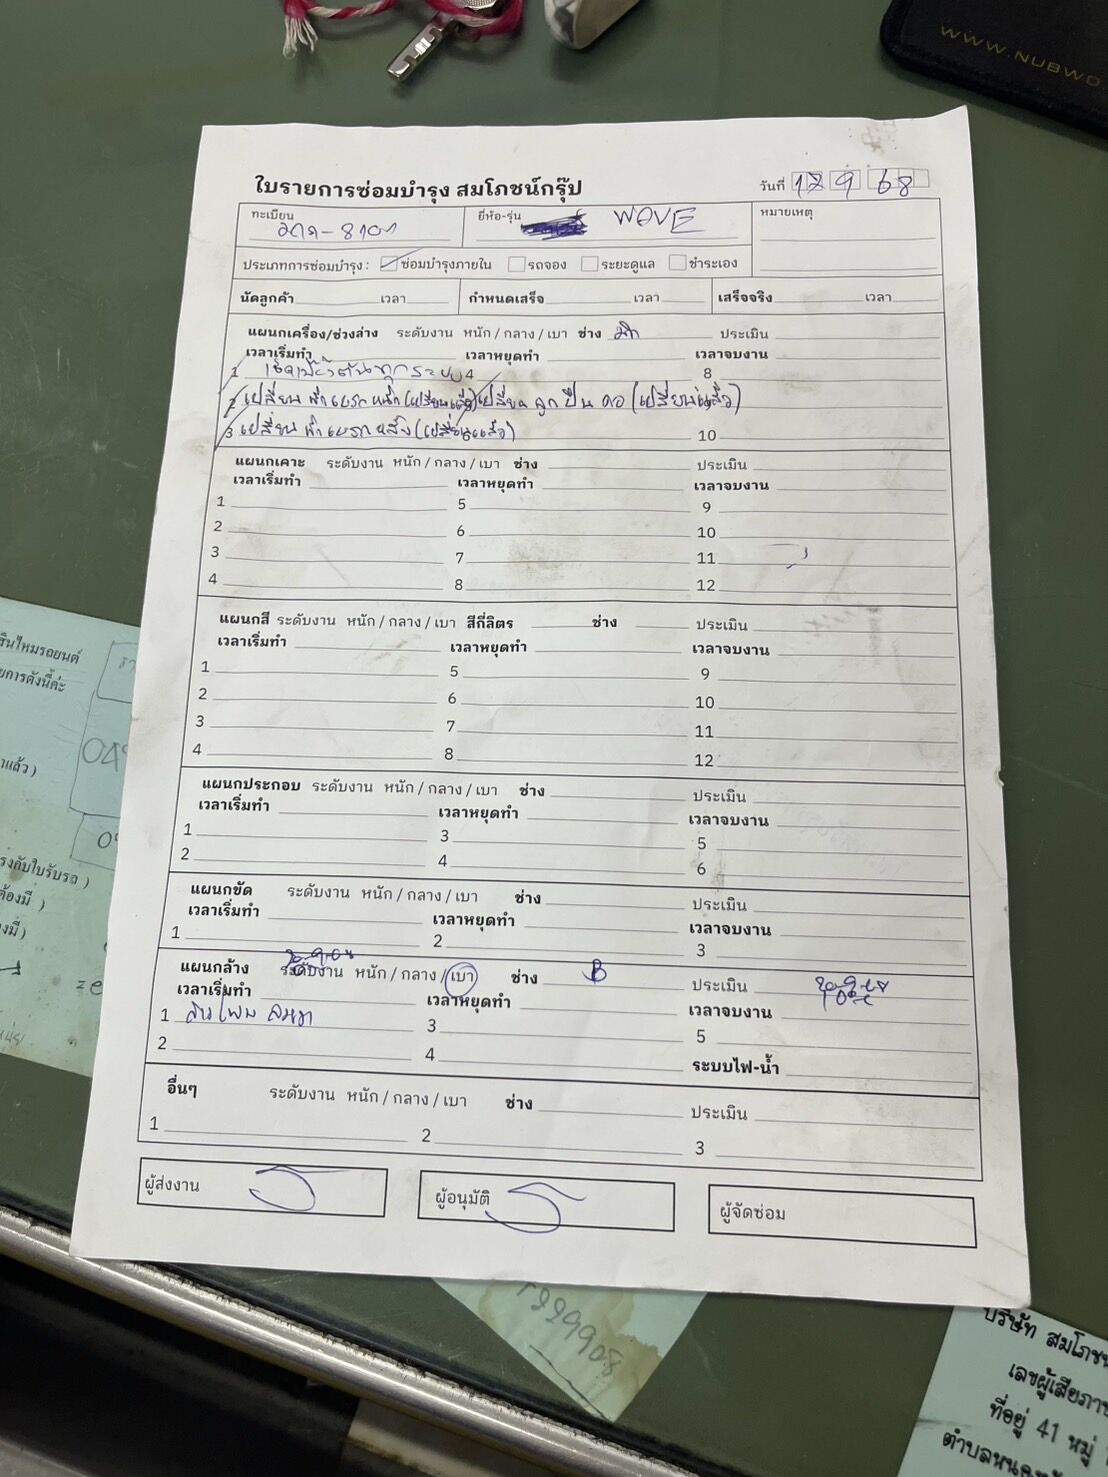 WWW.NUBWO
ใบรายการซ่อมบำรุง สมโภชน์กรุ๊ป
วันที่ 17 9 68
ทะเบียน ยี่ห้อ-รุ่น WAVE หมายเหตุ
ประเภทการซ่อมบำรุง : ซ่อมบำรุงภายใน รถจอง ระยะดูแล ชำระเอง
นัดลูกค้า เวลา กำหนดเสร็จ เวลา เสร็จจริง เวลา
แผนกเครื่อง/ช่วงล่าง ระดับงาน หนัก / กลาง / เบา ช่าง ประเมิน
เวลาเริ่มทำ เวลาหยุดทำ เวลาจบงาน
1 เช็คเบื้องต้นทุกระบบ 4 8
2 เปลี่ยนผ้าเบรกหน้า (เปลี่ยนแล้ว) เปลี่ยนลูกปืนคอ (เปลี่ยนแล้ว)
3 เปลี่ยนผ้าเบรกหลัง (เปลี่ยนแล้ว) 10
แผนกเคาะ ระดับงาน หนัก / กลาง / เบา ช่าง ประเมิน
เวลาเริ่มทำ เวลาหยุดทำ เวลาจบงาน
1 5 9
2 6 10
3 7 11
4 8 12
แผนกสี ระดับงาน หนัก / กลาง / เบา สีกี่ลิตร ช่าง ประเมิน
เวลาเริ่มทำ เวลาหยุดทำ เวลาจบงาน
1 5 9
2 6 10
3 7 11
4 8 12
แผนกประกอบ ระดับงาน หนัก / กลาง / เบา ช่าง ประเมิน
เวลาเริ่มทำ เวลาหยุดทำ เวลาจบงาน
1 3 5
2 4 6
แผนกขัด ระดับงาน หนัก / กลาง / เบา ช่าง ประเมิน
เวลาเริ่มทำ เวลาหยุดทำ เวลาจบงาน
1 2 3
แผนกล้าง ระดับงาน หนัก / กลาง / เบา ช่าง B ประเมิน
เวลาเริ่มทำ เวลาหยุดทำ เวลาจบงาน
1 3 5
2 4 ระบบไฟ-น้ำ
อื่นๆ ระดับงาน หนัก / กลาง / เบา ช่าง ประเมิน
1 2 3
ผู้ส่งงาน ผู้อนุมัติ ผู้จัดซ่อม
สินไหมรถยนต์
ยการดังนี้ค่ะ
มาแล้ว )
รงกับใบรับรถ )
ต้องมี )
องมี )
บริษัท สมโภชน์
เลขผู้เสียภา
ที่อยู่ 41 หมู่